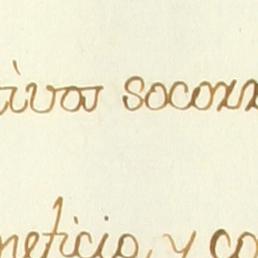 tivos socorr
neficio, y co